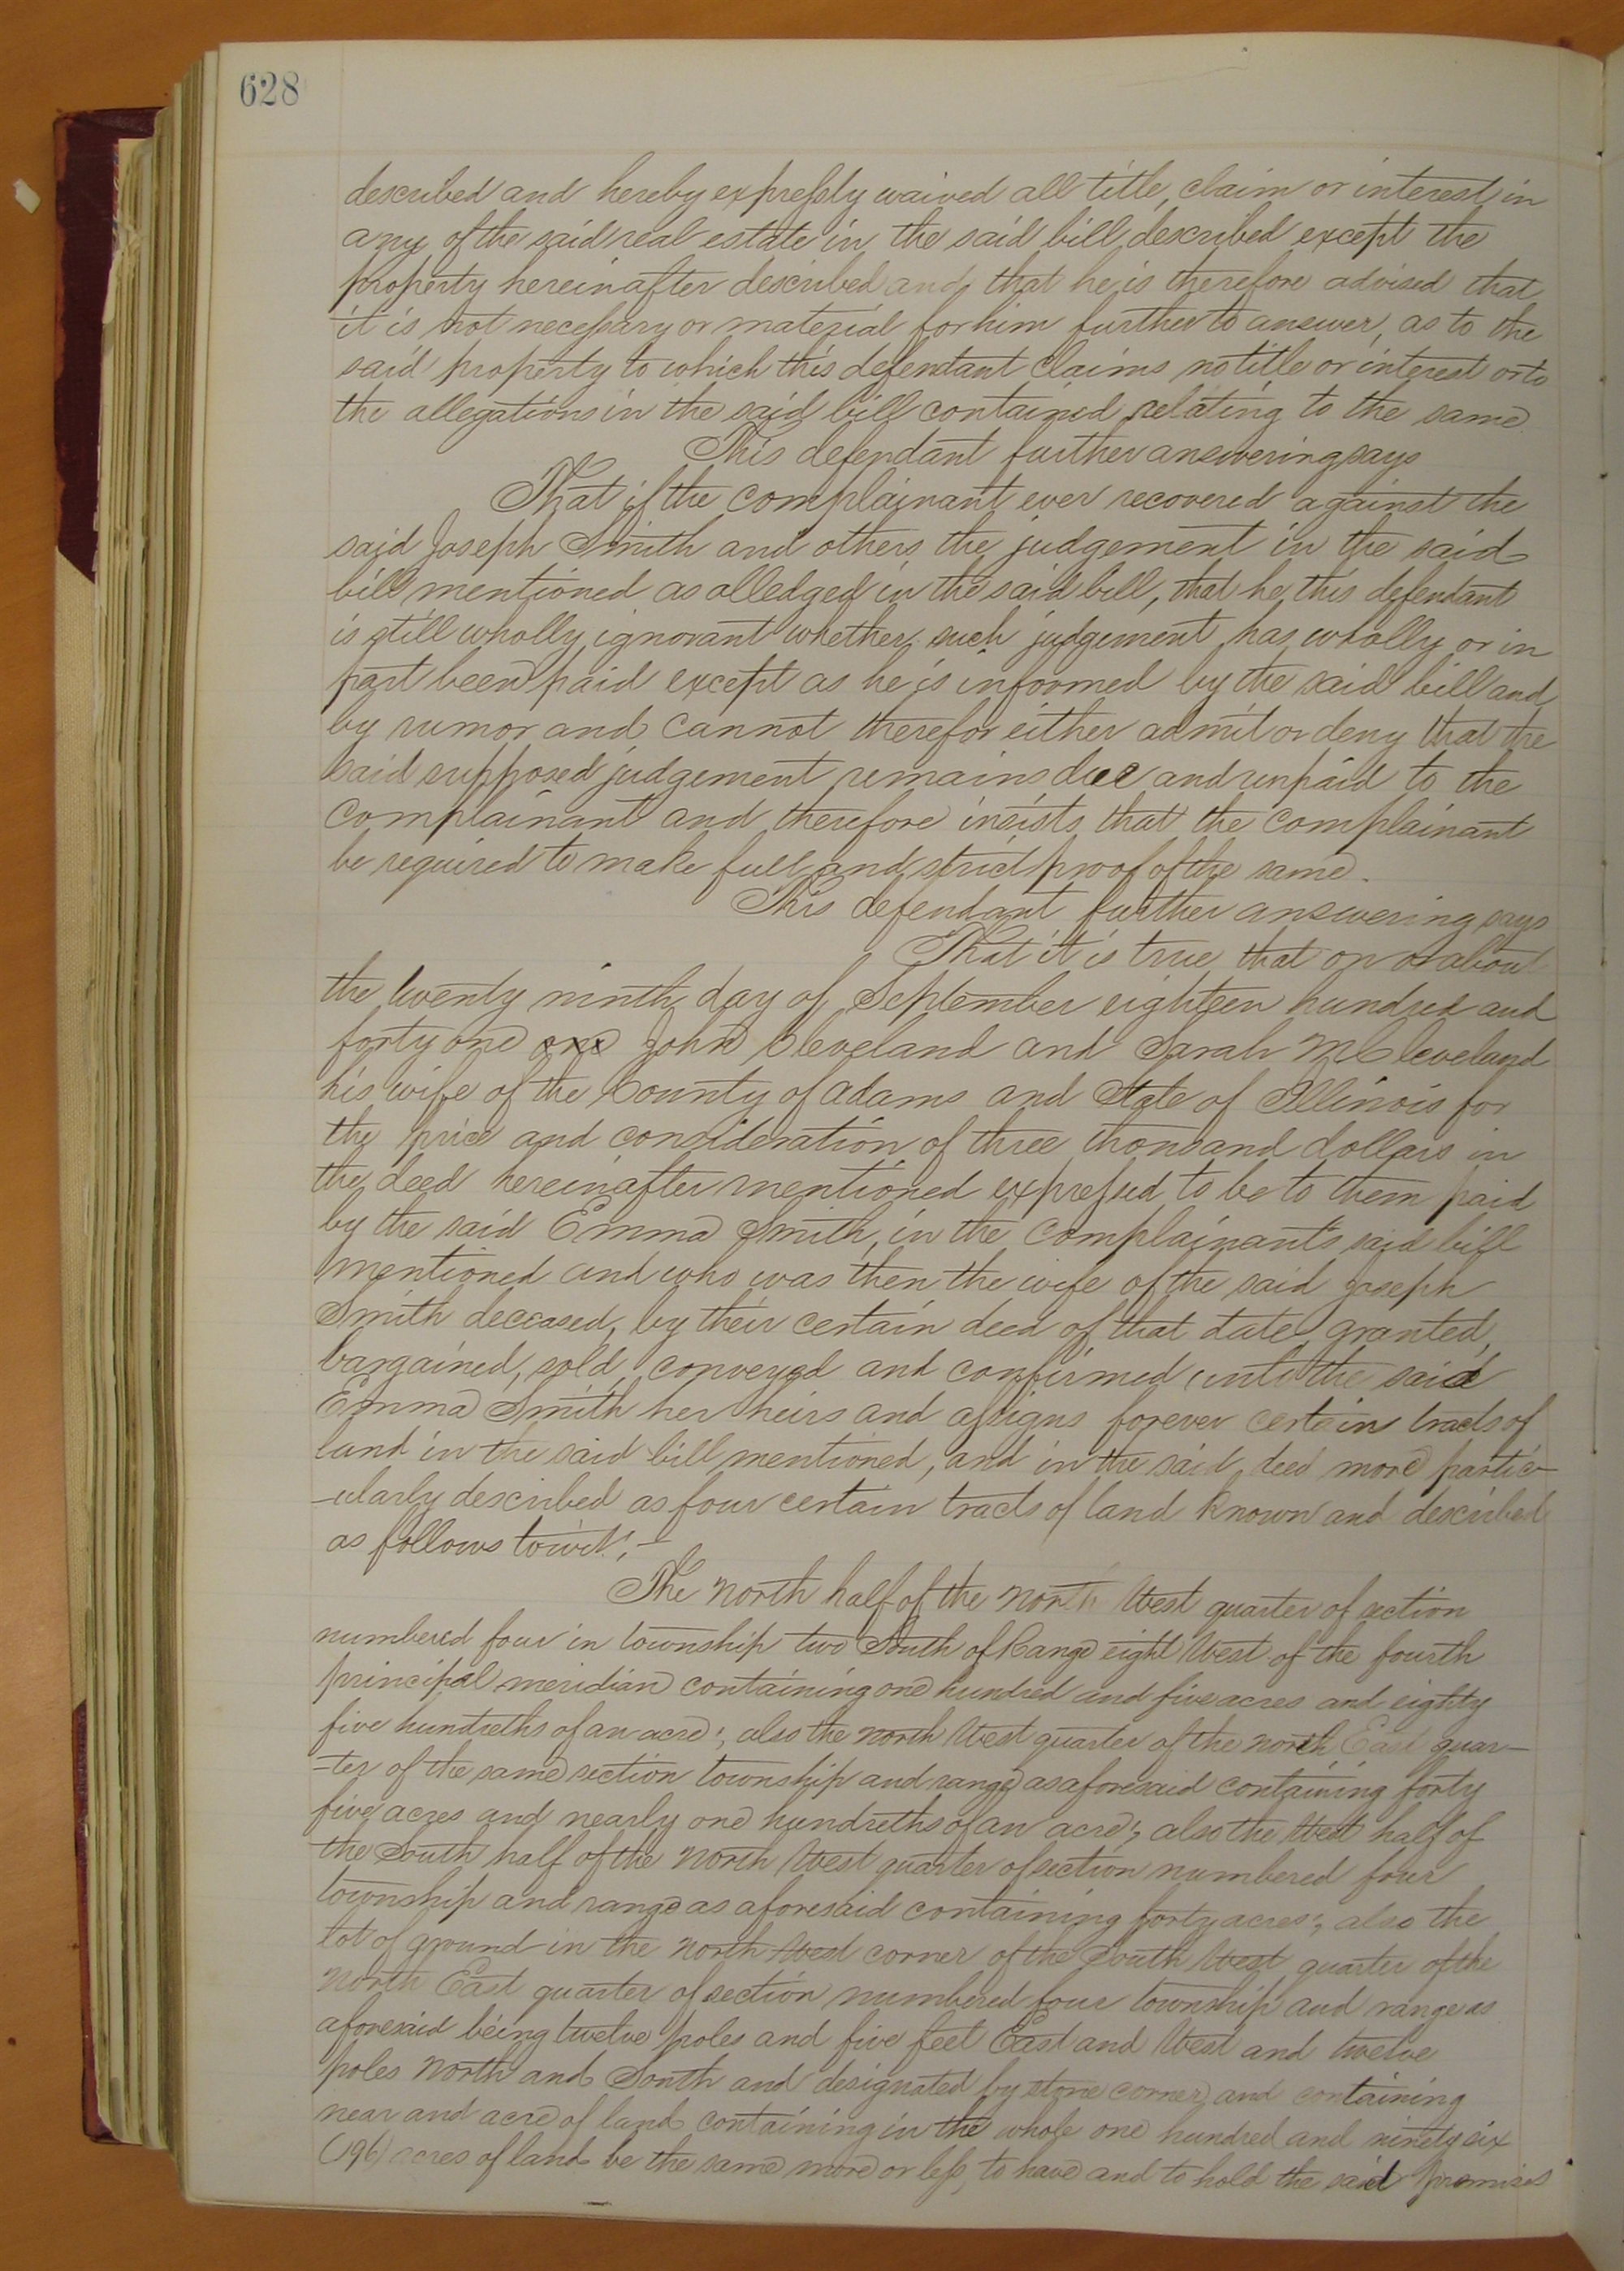 628
described and hereby expressly waived all title, claim or interest in
any of the said real estate in the said bill described except the
property hereinafter described and that he is therefore advised that
it is not necessary or material for him further to answer, as to the
said property to which this defendant claims no title or interest or to
the allegations in the said bill contained relating to the same
This defendant further answering says
That if the complainant ever recovered against the
said Joseph Smith and others the judgement in the said
bill mentioned as alledged in the said bill, that he this defendant
is still wholly ignorant whether such judgement has wholly or in
part been paid except as he is informed by the said bill and
by rumor and cannot therefor either admit or deny that the
said supposed judgement remains due and unpaid to the
complainant and therefore insists that the complainant
be required to make full and strict proof of the same.
This defendant further answering says
That it is true that on or about
the twenty ninth day of September eighteen hundred and
forty one one John Cleveland and Sarah M Cleveland
his wife of the County of Adams and State of Illinois for
the price and consideration of three thousand dollars in
the deed hereinafter mentioned expressed to be to them paid
by the said Emma Smith, in the complainants said bill
mentioned and who was then the wife of the said Joseph
Smith deceased, by their certain deed of that date granted,
bargained, sold conveyed and confirmed unto the said
Emma Smith her heirs and assigns forever certain tracts of
land in the said bill mentioned, and in the said deed more partic-
-ularly described as four certain tracts of land known and described
as follows towit:-
The North half of the North West quarter of section
numbered four in township two South of Range eight West of the fourth
principal meridian containing one hundred and five acres and eighty
five hundreths of an acre; also the North West quarter of the North East quar-
-ter of the same section township and range as aforesaid containing forty
five acres and nearly one hundreths of an acre; also the West half of
the South half of the North West quarter of section numbered four
township and range as aforesaid containing forty acres; also the
lot of ground in the North West corner of the South West quarter of the
North East quarter of section numbered four township and range as
aforesaid being twelve poles and five feet East and West and twelve
poles North and South and designated by stone corners and containing
near and acre of land containing in the whole one hundred and ninety six
(196) acres of land be the same more or less, to have and to hold the said premises